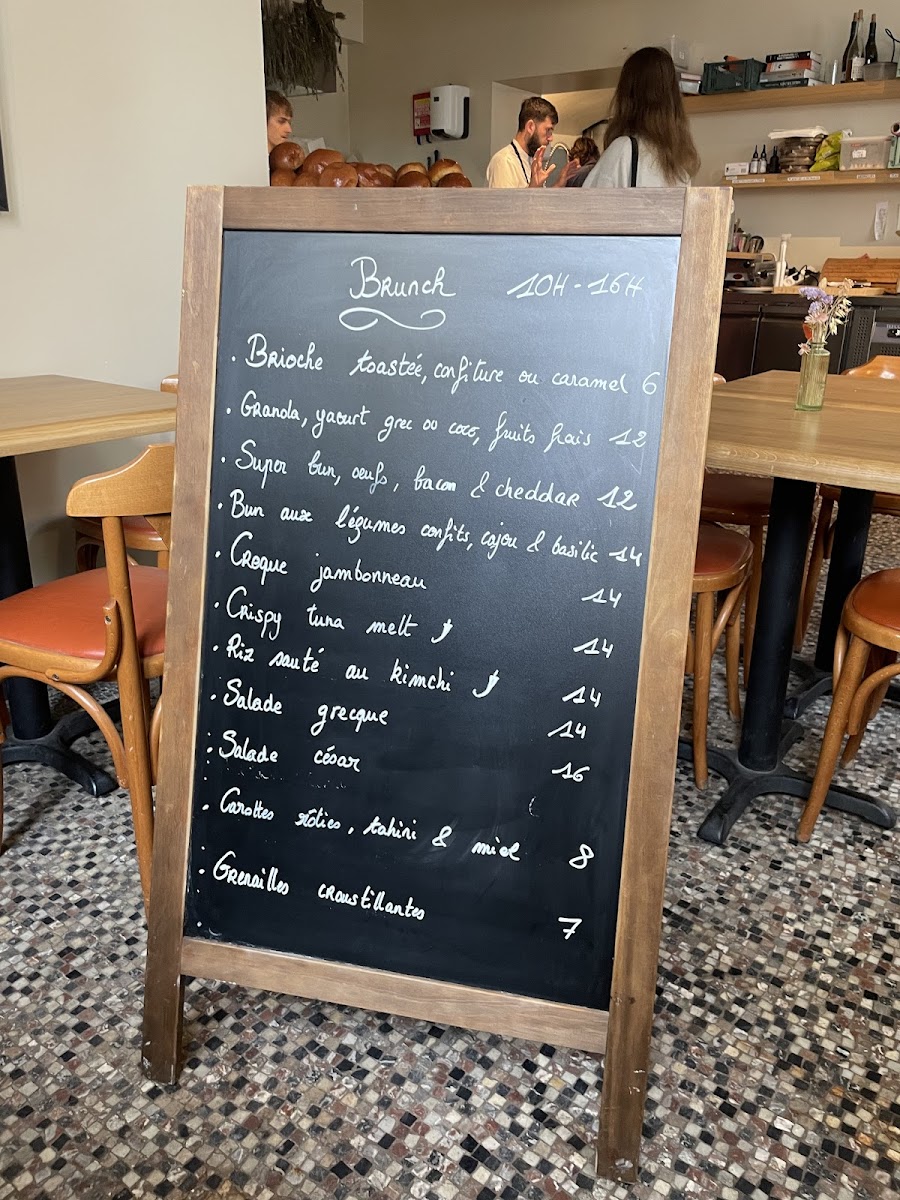 Brunch 10H - 16H
. Brioche toastée, confiture ou caramel 6
. Granola, yaourt grec ou coco, fruits frais 12
. Super bun, oeufs, bacon & cheddar 12
. Bun aux légumes confits, cajou & basilic 14
. Croque jambonneau 14
. Crispy tuna melt 14
. Riz sauté au kimchi 14
. Salade grecque 14
. Salade césar 16
. Carottes rôties, tahini & miel 8
. Grenailles croustillantes 7